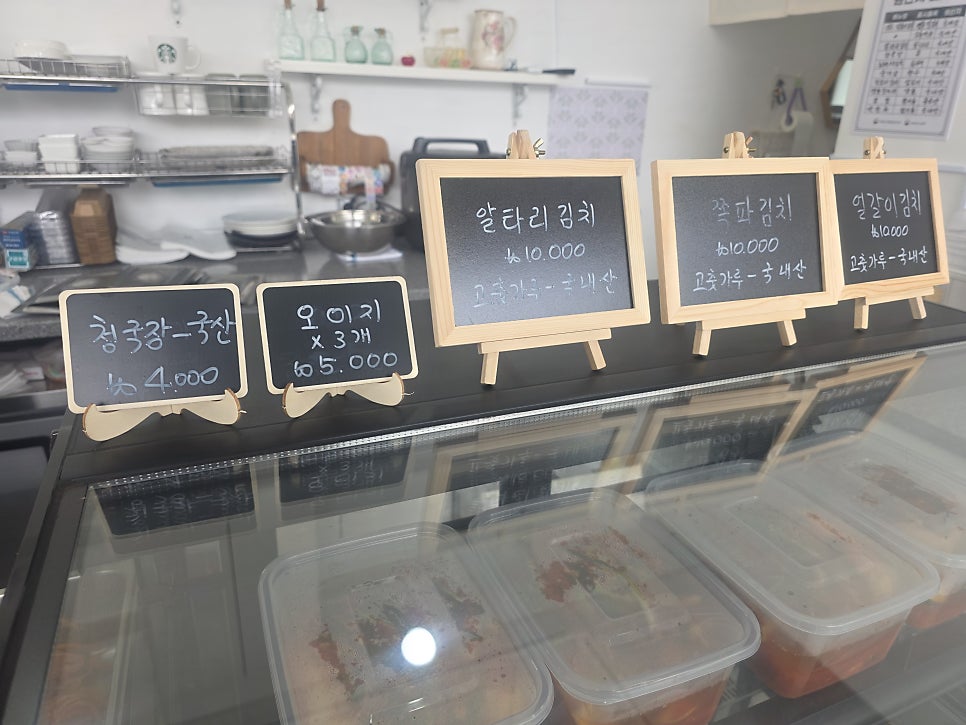 청국장-국산
₩4.000
오이지
x 3개
₩5.000
알타리김치
₩10.000
고춧가루-국내산
쪽파김치
₩10.000
고춧가루-국내산
얼갈이김치
₩10.000
고춧가루-국내산